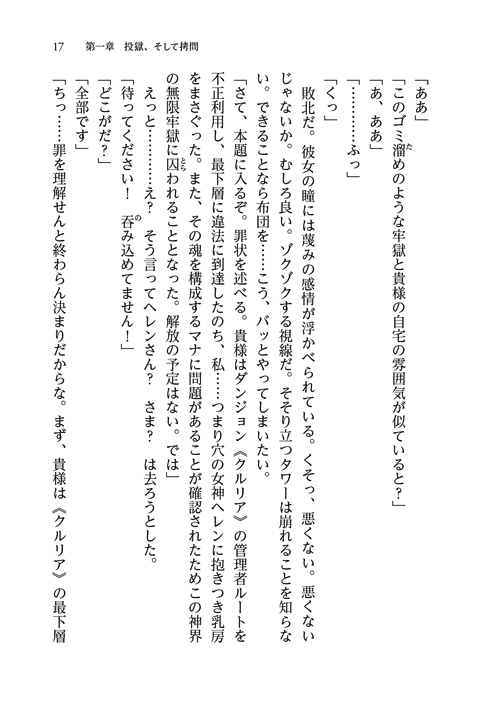 17　第一章　投獄、そして拷問
「ああ」
「このゴミ溜めのような牢獄と貴様の自宅の雰囲気が似ていると？」
「あ、ああ」
「…………ふっ」
「くっ」
　敗北だ。彼女の瞳には蔑みの感情が浮かべられている。くそっ、悪くない。悪くない
じゃないか。むしろ良い。ゾクゾクする視線だ。そそり立つタワーは崩れることを知らな
い。できることなら布団を……こう、バッとやってしまいたい。
「さて、本題に入るぞ。罪状を述べる。貴様はダンジョン《クルリア》の管理者ルートを
不正利用し、最下層に違法に到達したのち、私……つまり穴の女神ヘレンに抱きつき乳房
をまさぐった。また、その魂を構成するマナに問題があることが確認されたためこの神界
の無限牢獄に囚われることとなった。解放の予定はない。では」
　えっと…………え？　そう言ってヘレンさん？　さま？　は去ろうとした。
「待ってください！　呑み込めてません！」
「どこがだ？」
「全部です」
「ちっ……罪を理解せんと終わらん決まりだからな。まず、貴様は《クルリア》の最下層